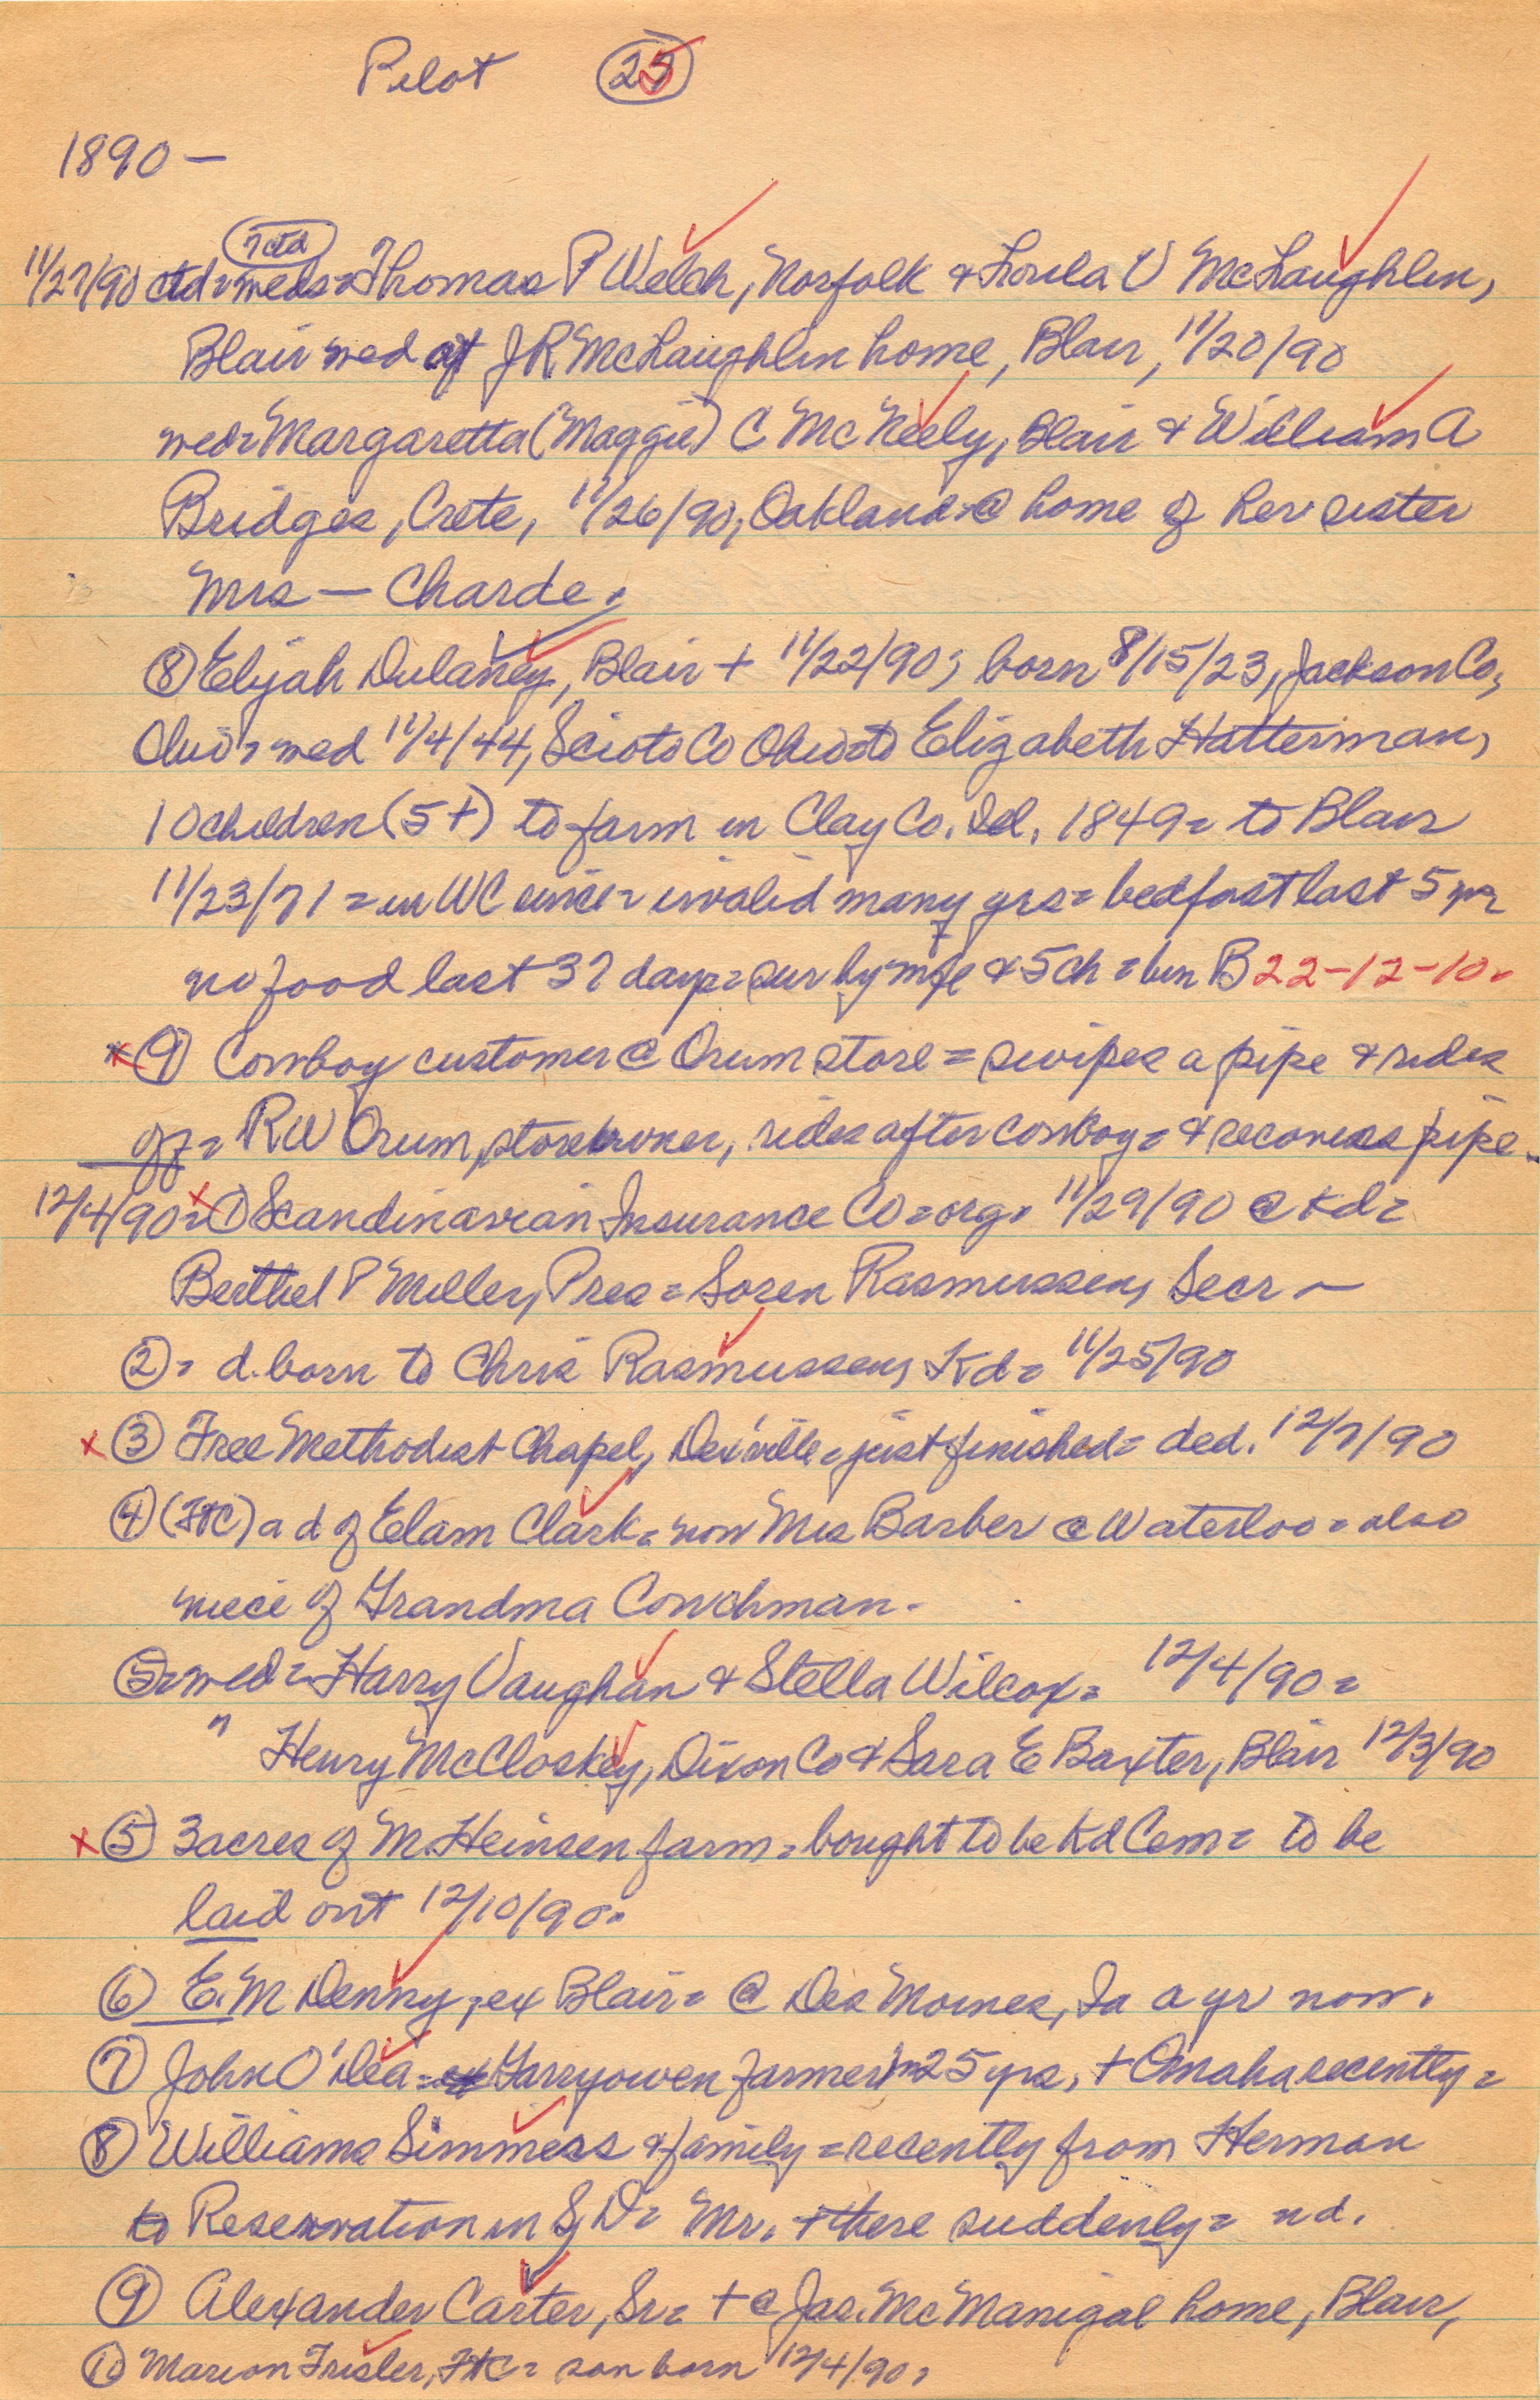 Pilot 25
1890 —
7 ctd
11/27/90 ctd = weds = Thomas P Welch, Norfolk & Loula V McLaughlin,
Blair wed at JR McLaughlin home, Blair, 11/20/90
wed = Margaretta (Maggie) C McNeely, Blair & William A
Bridges, Crete, 11/26/90, Oakland @ home of her sister
Mrs — Charde.
⑧ Elijah Dulaney, Blair + 11/22/90; born 8/15/23, Jackson Co,
Ohio = wed 11/4/44, Scioto Co Ohio to Elizabeth Hatterman,
10 children (5+) to farm in Clay Co. Ind. 1849 = to Blair
11/23/71 = in WC since = invalid many yrs = bedfast last 5 yrs
no food last 37 days = sur by wife & 5 ch = bur B 22-12-10.
x ⑨ Cowboy customer @ Orum store = swipes a pipe & rides
off = RW Orum, store owner, rides after cowboy = & recovers pipe.
12/4/90 = x ① Scandinavian Insurance Co = org. 11/29/90 @ Kd =
Berthel P Miller, Pres = Soren Rasmussen, Secr ~
② = d. born to Chris Rasmussen, Kd = 11/25/90
x ③ Free Methodist Chapel, Des'ville = just finished = ded. 12/7/90
④ (FtC) a d of Elam Clark = now Mrs Barber @ Waterloo = also
niece of Grandma Couchman.
⑤ = wed = Harry Vaughan & Stella Wilcox = 12/4/90 =
" Henry McCloskey, Dixon Co & Sara E Baxter, Blair 12/3/90
x ⑤ 3 acres of M. Heinsen farm = bought to be Kd Cem = to be
laid out 12/10/90.
⑥ E.M Denny, ex Blair = @ Des Moines, Ia a yr now.
⑦ John O'Dea = Garryowen farmer 25 yrs, + Omaha recently =
⑧ Williams Simmers & family = recently from Herman
to Reservation in S D = Mr. + there suddenly = nd.
⑨ Alexander Carter, Sr = + @ Jas. McManigal home, Blair,
⑩ Marion Frisler, FtC = son born 12/4/90,